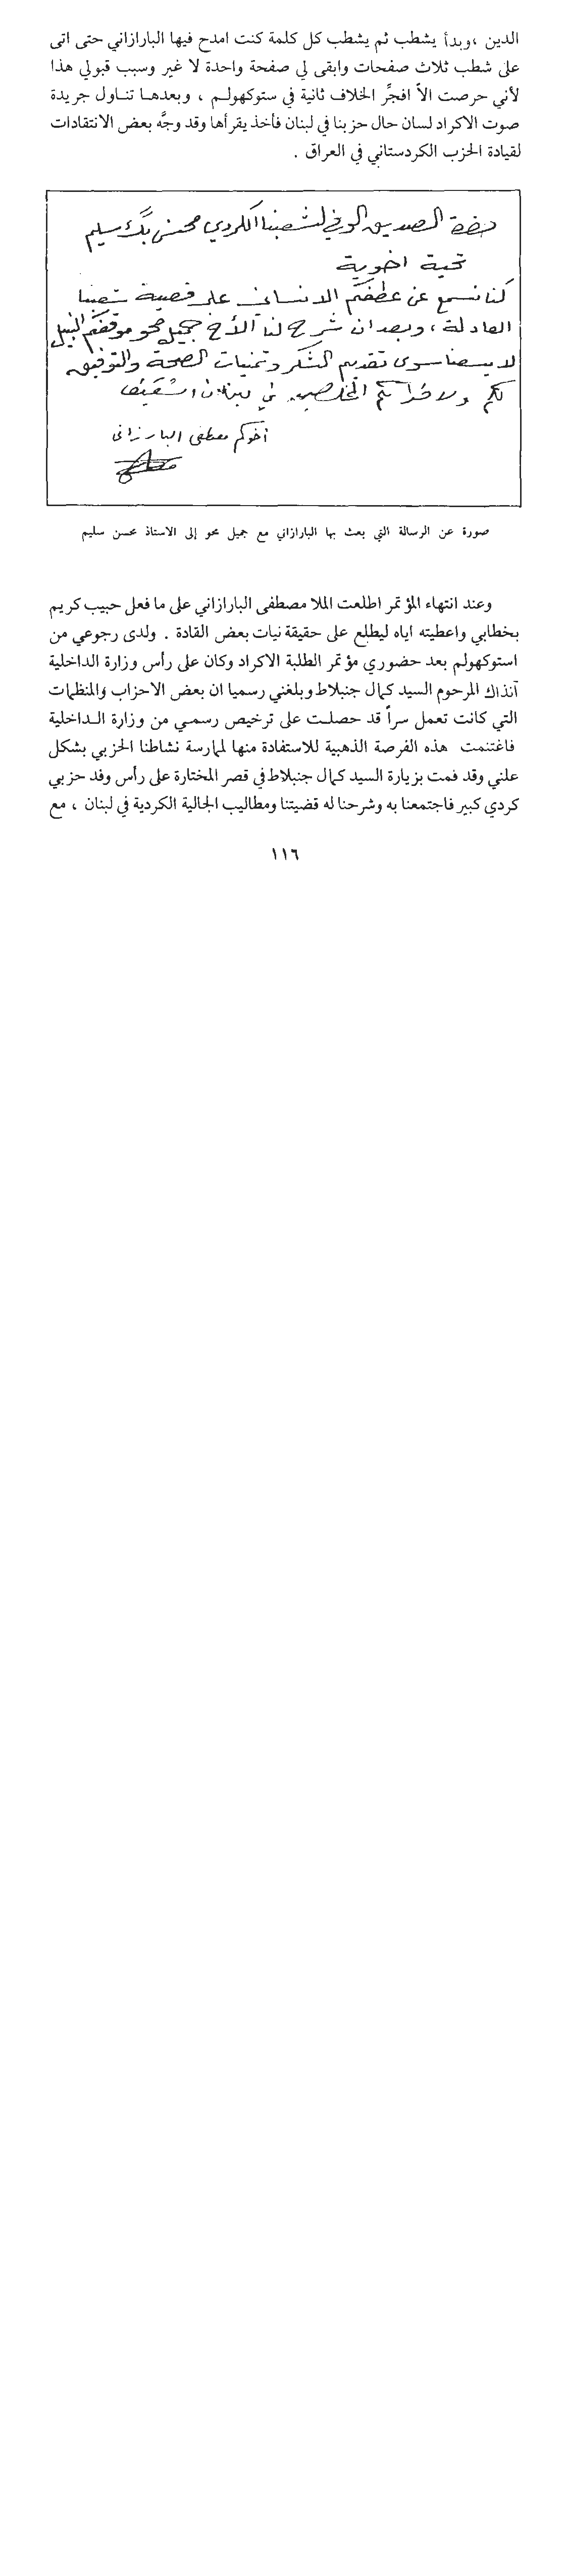 الدين ،وبدأ يشطب ثم يشطب كل كلمة كنت امدح فيها البارازاني حتى اتى
على شطب ثلاث صفحات وابقى لي صفحة واحدة لا غير وسبب قبولي هذا
لأني حرصت الاّ افجِّر الخلاف ثانية في ستوكهولـم ، وبعدهـا تنـاول جريدة
صوت الاكراد لسان حال حزبنا في لبنان فأخذ يقرأها وقد وجَّه بعض الانتقادات
لقيادة الحزب الكردستاني في العراق .
حضرة الصديق الوفي لشعبنا الكردي محسن بك سليم
تحية اخوية
كنا نسمع عن عطفكم الانساني على قضية شعبنا
العادلة ، وبعد ان شرح لنا الأخ جميل محو موقفكم النبيل
لا يسعنا سوى تقديم الشكر وتمنيات الصحة والتوفيق
لكم ولاخوانكم المخلصين في لبنان الشقيق
أخوكم مصطفى البارزاني
صورة عن الرسالة التي بعث بها البارازاني مع جميل محو إلى الاستاذ محسن سليم
وعند انتهاء المؤتمر اطلعت الملا مصطفى البارازاني على ما فعل حبيب كريم
بخطابي واعطيته اياه ليطلع على حقيقة نيات بعض القادة . ولدى رجوعي من
استوكهولم بعد حضوري مؤتمر الطلبة الاكراد وكان على رأس وزارة الداخلية
آنذاك المرحوم السيد كمال جنبلاط وبلغني رسميا ان بعض الاحزاب والمنظمات
التي كانت تعمل سراً قد حصلـت على ترخيص رسمـي من وزارة الـداخلية
فاغتنمت هذه الفرصة الذهبية للاستفادة منها لممارسة نشاطنا الحزبي بشكل
علني وقد قمت بزيارة السيد كمال جنبلاط في قصر المختارة على رأس وفد حزبي
كردي كبير فاجتمعنا به وشرحنا له قضيتنا ومطاليب الجالية الكردية في لبنان ، مع
١١٦